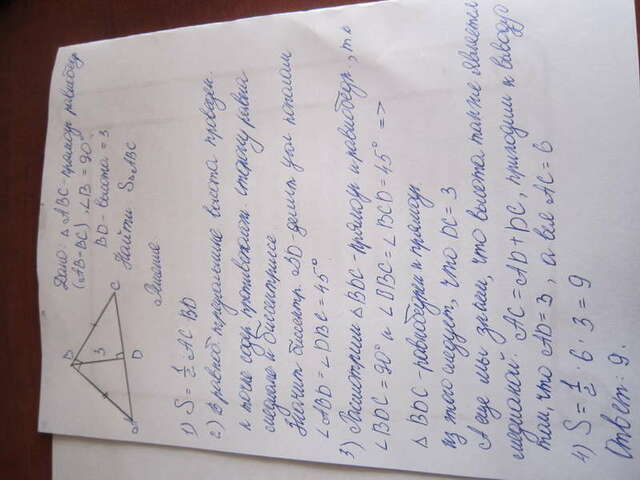 Дано: △ABC - прямоуг. равнобедр.
(AB=BC), ∠B=90°
BD - высота = 3
Найти S△ABC
B
3
A
D
C
Решение
1) S = 1/2 · AC · BD
2) В равноб. треугольнике высота проведен.
к
сторону равна
медиане и биссектрисе
Значит биссектр. BD делит угол пополам
∠ABD = ∠DBC = 45°
3) Рассмотрим △BDC - прямоуг. и равнобедр., т.к
∠BDC = 90° и ∠DBC = ∠BCD = 45° =>
△BDC - равнобедрен и прямоуг.
из этого следует, что DC = 3
А еще мы знаем, что высота также является
медианой. AC = AD + DC, приходим к выводу
там, что AD = 3, а вся AC = 6
4) S = 1/2 · 6 · 3 = 9
Ответ: 9.